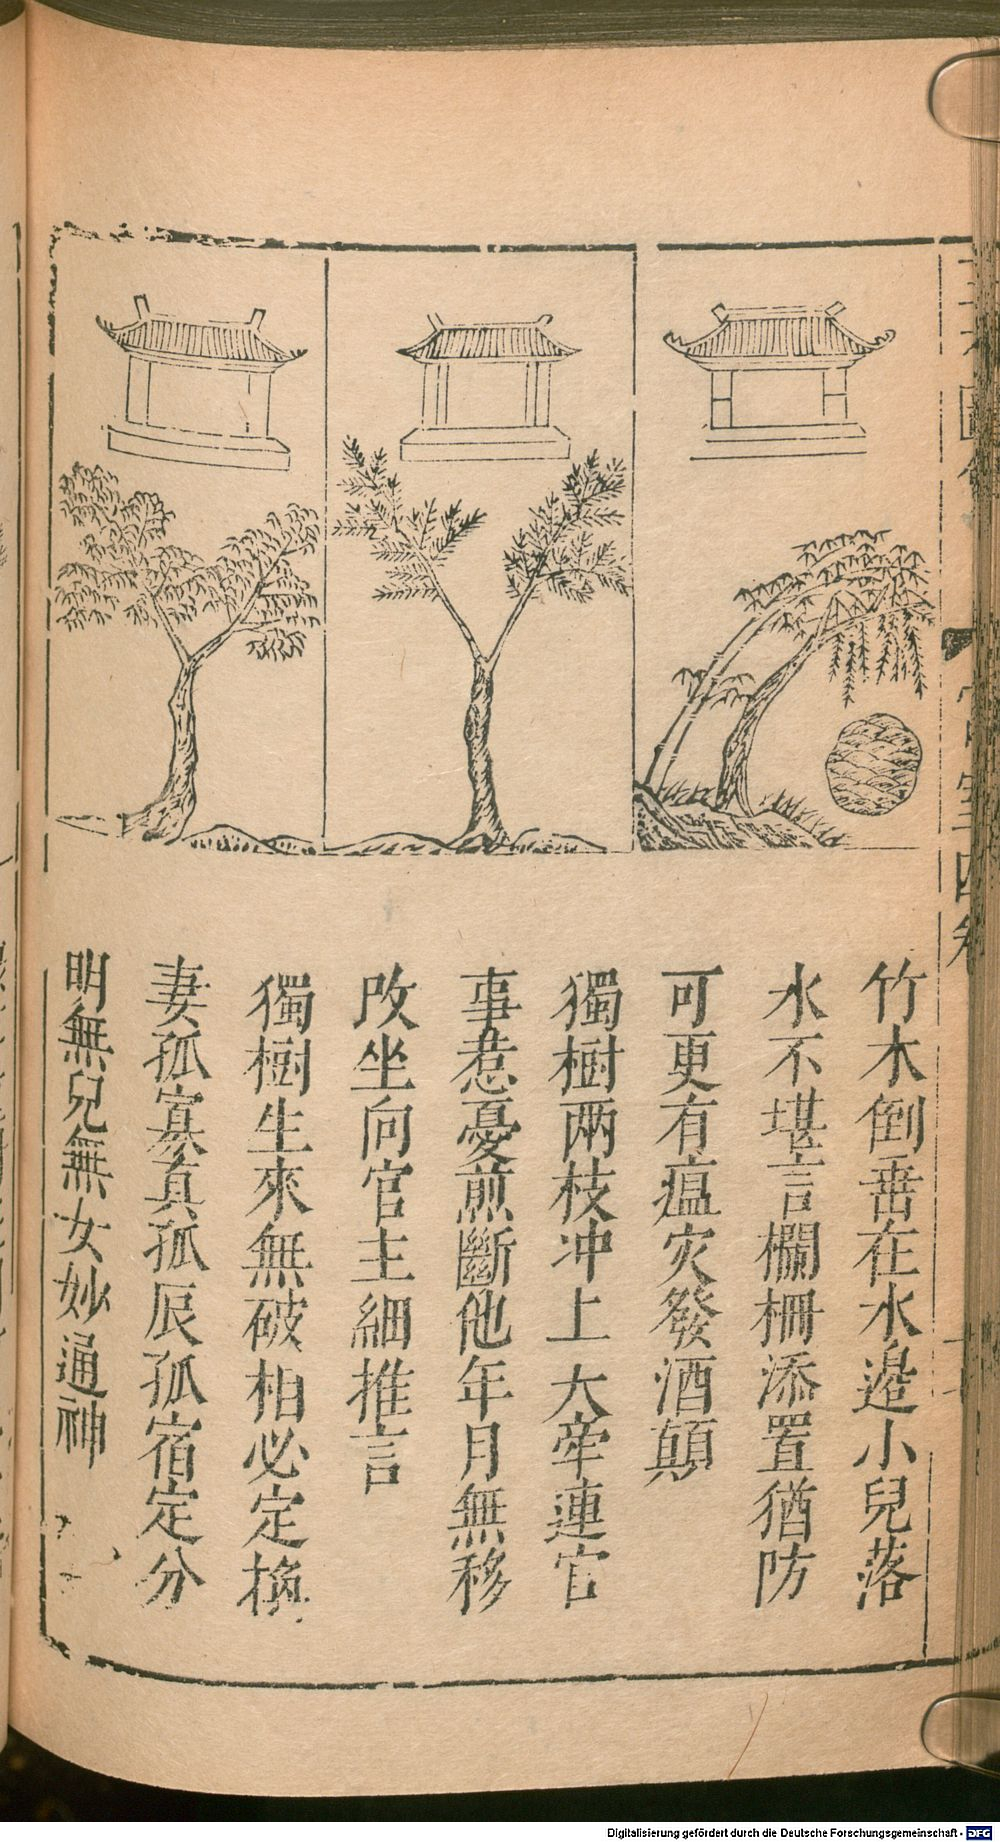 竹木倒垂在水邉小兒落
水不堪言欄柵添置猶防
可更有瘟灾發酒顛
獨樹兩枝冲上大牽連官
事惹憂煎斷他年月無移
改坐向官主細推言
獨樹生來無破相必定換
妻孤寡真孤辰孤宿定分
明無兒無女妙通神
Digitalisierung gefördert durch die Deutsche Forschungsgemeinschaft - DFG